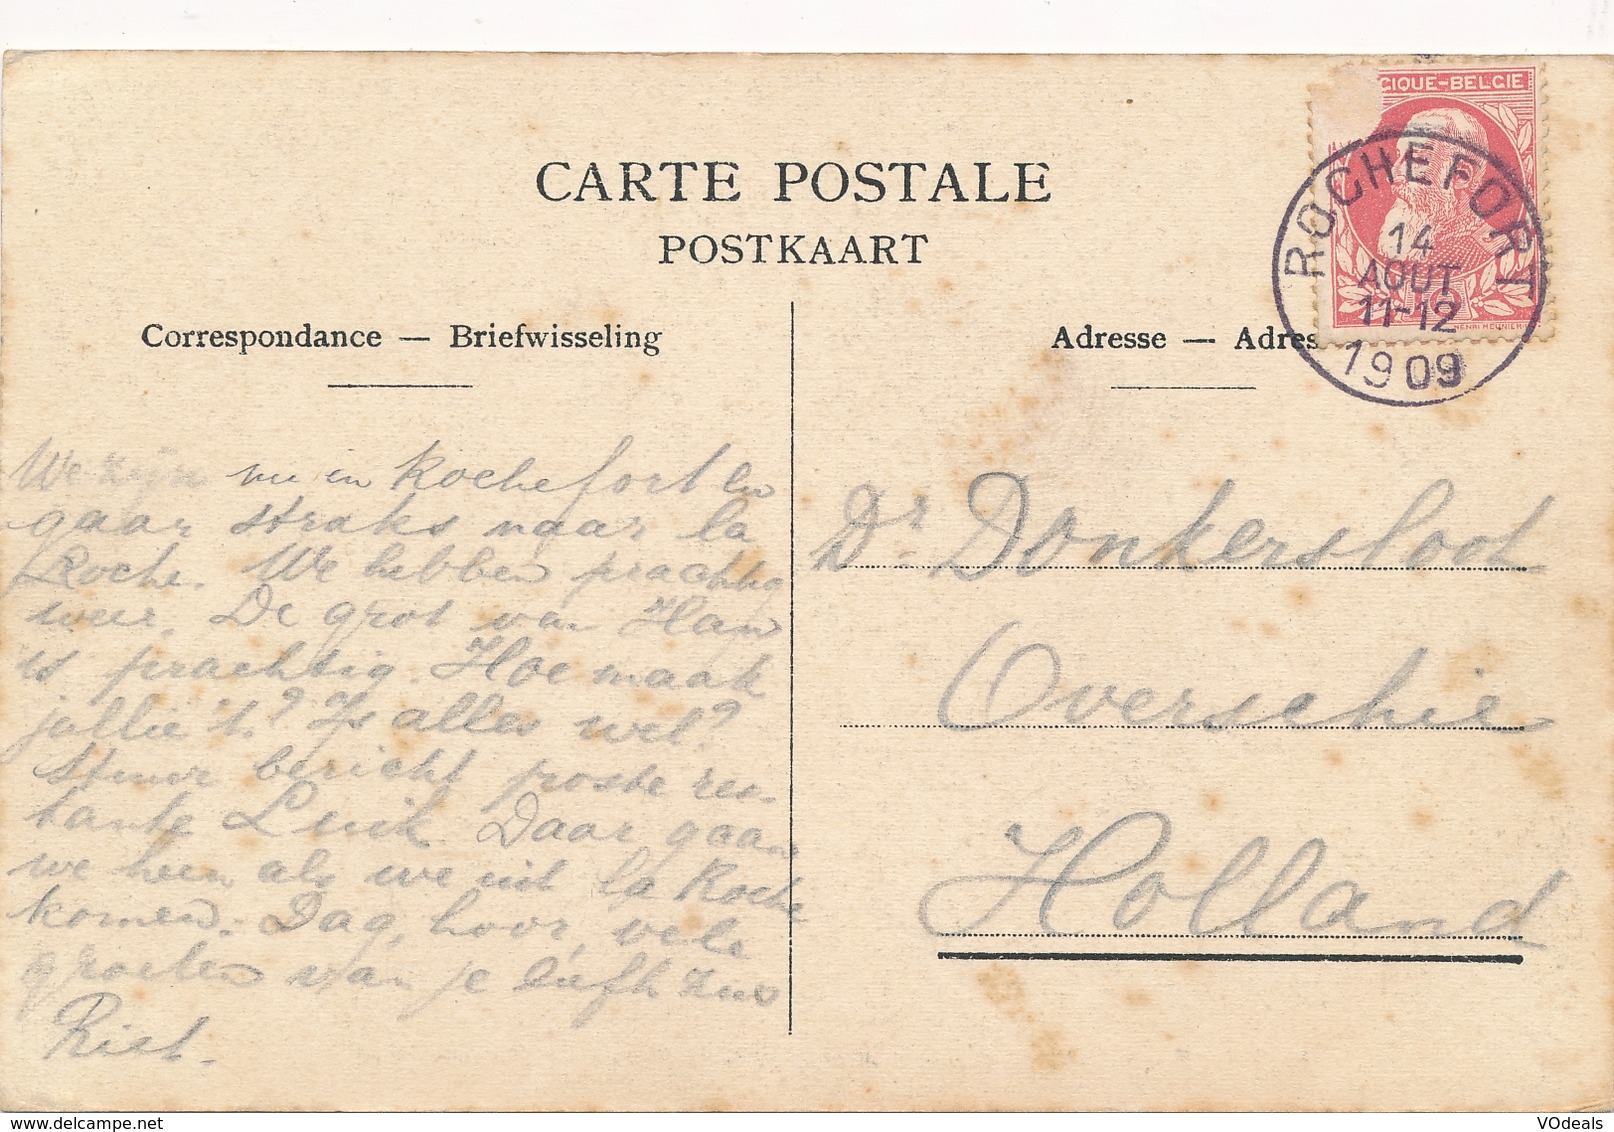 CIQUE-BELGIE
ROCHEFORT
14
AOUT
11-12
1909
HENRI MEUNIER
CARTE POSTALE
POSTKAART
Correspondance — Briefwisseling
Adresse — Adres
We zijn nu in Rochefort en
gaan straks naar la
Roche. We hebben prachtig
weer. De grot van Han
is prachtig. Hoe maak
jullie 't? Is alles wel?
Stuur bericht poste res-
tante Luik. Daar gaan
we heen als we uit la Roche
komen. Dag, hoor, vele
groeten van je liefh. zus
Riet.
Dr. Donkersloot
Overschie
Holland
VOdeals